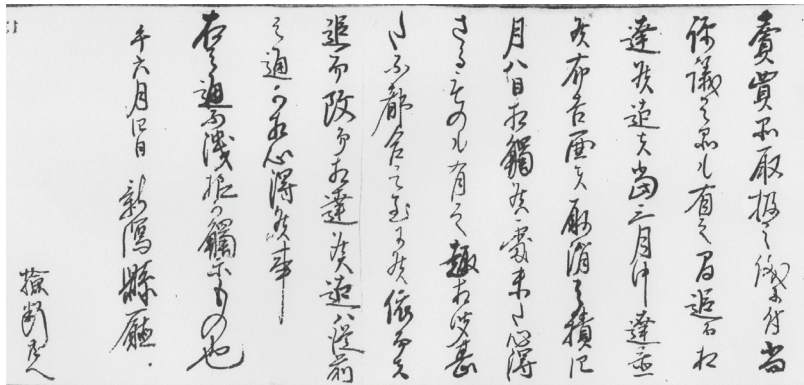 賣買品取扱之儀ニ付当
律儀之品も有之間追而相
達候迄者当三月中達置
候布告面者取消之積ニ
月八日相觸候處未タ心得
さるものも有之趣相聞甚
タ不都合之至ニ候依而者
追而改而相達候迄ハ従前
之通可相心得候事
右之通不洩様可觸示もの也
午六月四日 新潟縣廳
檢断